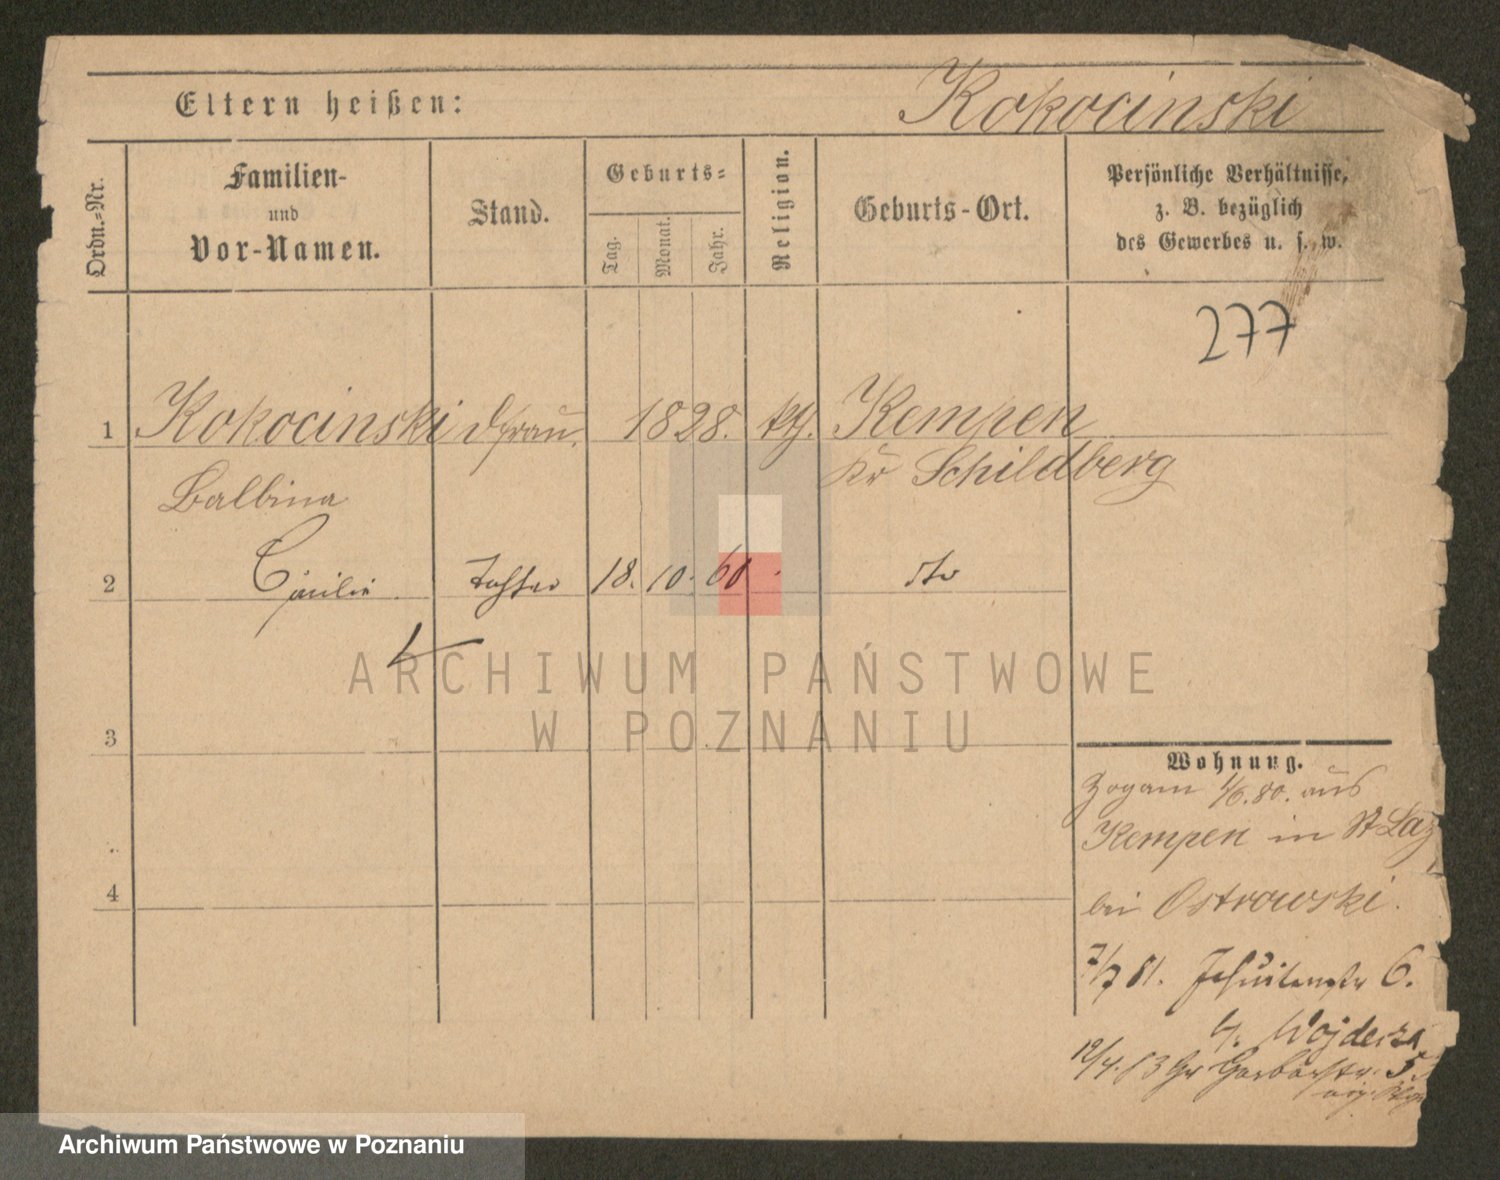 Eltern heißen:
Kokocinski
Ordn.-Nr.
Familien-
und
Vor-Namen.
Stand.
Geburts-
Tag.
Monat.
Jahr.
Religion.
Geburts-Ort.
Persönliche Verhältnisse,
z. B. bezüglich
des Gewerbes u. s. w.
277
1 Kokocinski 1828. kth. Kempen
Balbina Kr Schildberg
2 Cäcilie Tochter 18. 10. 60 dto
3
4
Wohnung.
Zogam 1/6.80. aus
Kempen in St Laz
bei Ostrowski.
7/7 81. Jesuitenstr 6.
12/4. 83 Gr Gerberstr.
ARCHIWUM PAŃSTWOWE
W POZNANIU
Archiwum Państwowe w Poznaniu